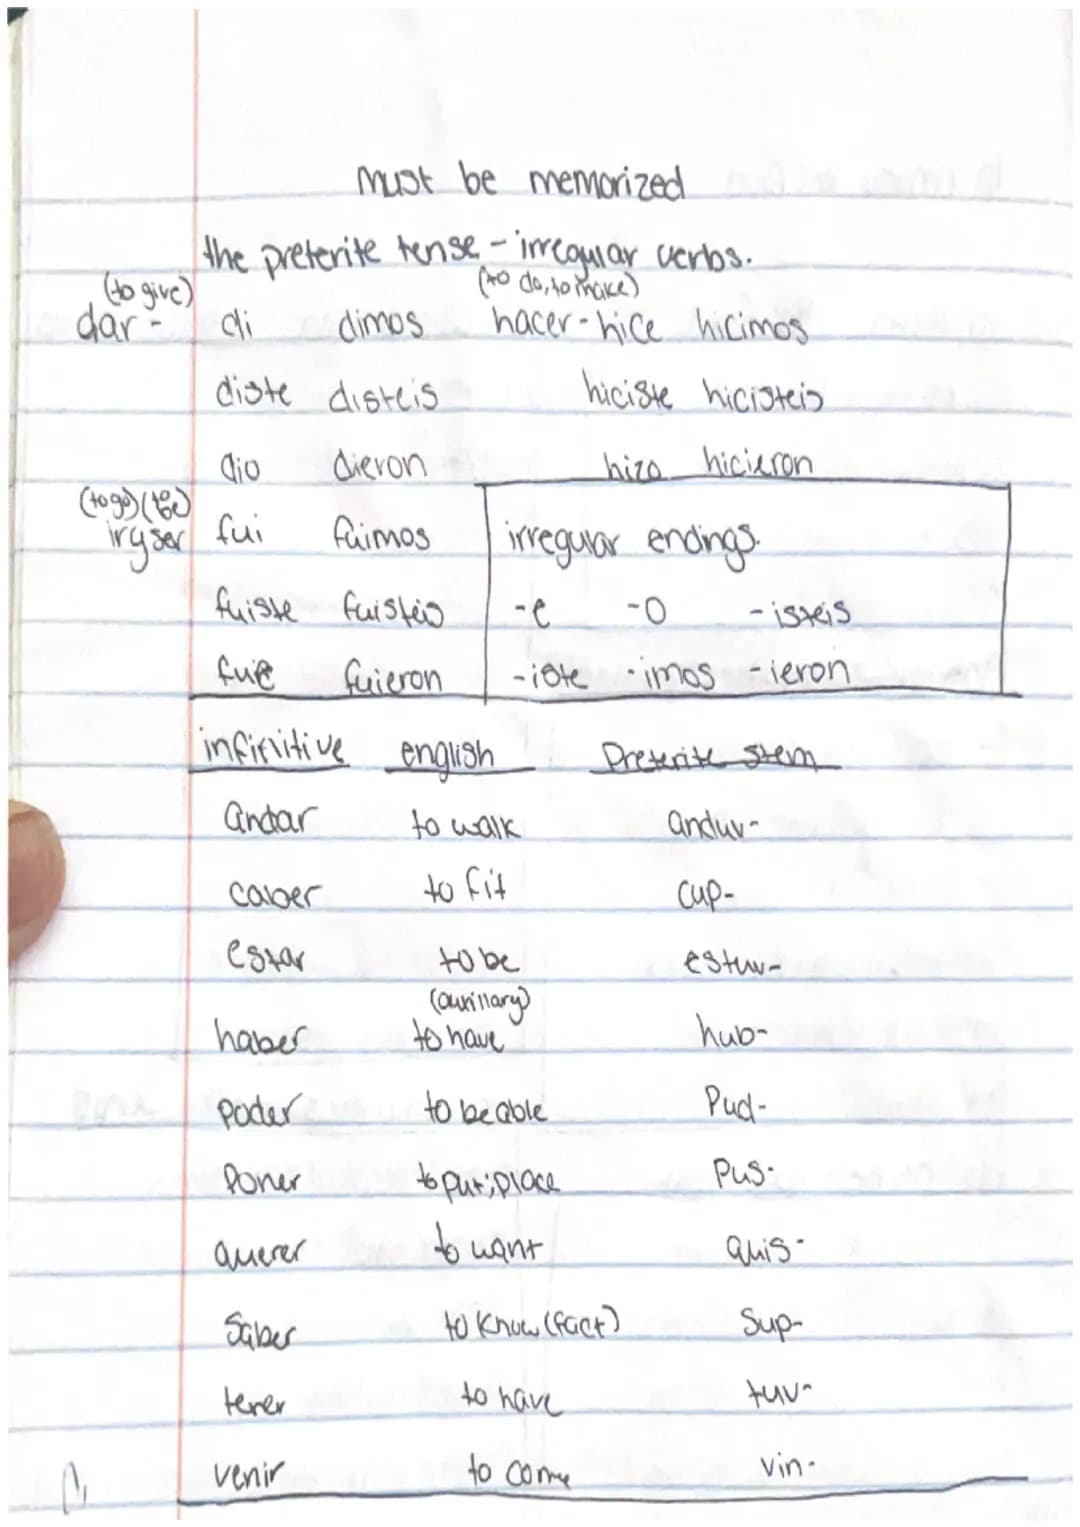 must be memorized
the preterite tense - irregular verbs.
(to give) (to do, to make)
dar - di dimos hacer - hice hicimos
diste disteis hiciste hicisteis
dio dieron hizo hicieron
(to go) (to be)
ir y ser fui fuimos irregular endings.
fuiste fuisteis -e -o -isteis
fue fuieron -iste -imos -ieron
infinitive english Preterite stem
andar to walk anduv-
caber to fit cup-
estar to be estuv-
(auxillary)
haber to have hub-
poder to be able Pud-
Poner to put; place Pus-
querer to want quis-
Saber to know (fact) Sup-
tener to have tuv-
venir to come vin-